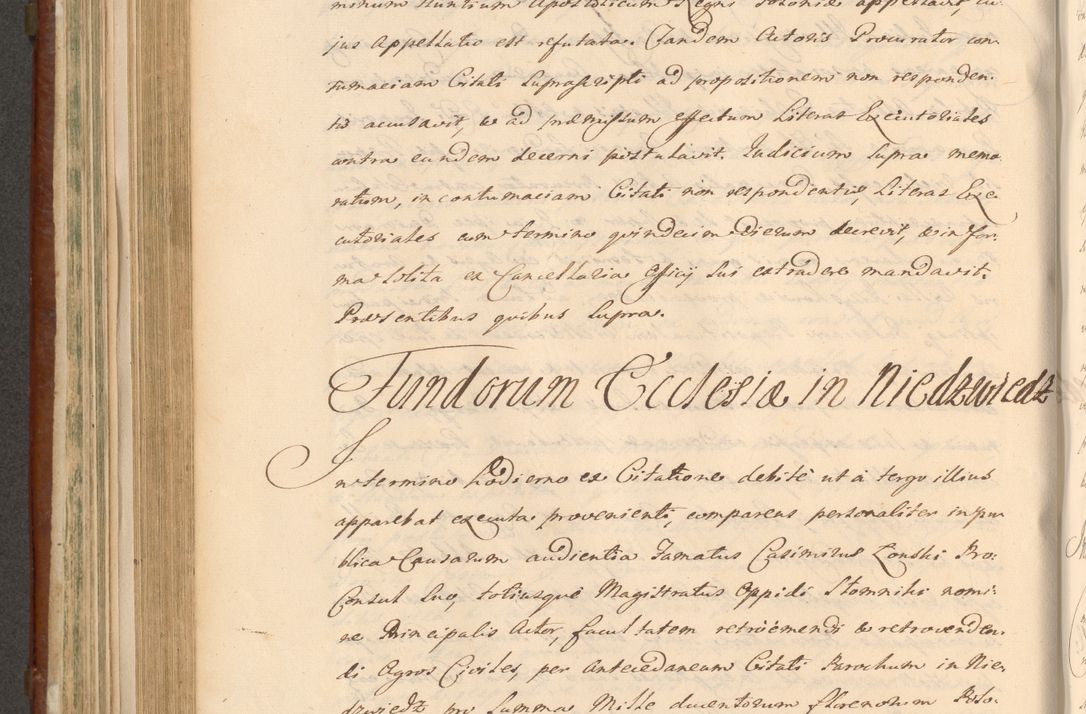 minum Nuntium Apostolicum Regni Poloniæ appellavit, cu-
jus Appellatio est refutata. Tandem Actoris Procurator con-
tumaciam Citati suprascripti ad propositionem non responden-
tis accusavit, & ad præmissum effectum Literas Executoriales
contra eundem decerni postulavit. Judicium supra memo-
ratum, in contumaciam Citati non respondentis, Literas Exe-
cutoriales cum termino quindecim dierum decrevit, & in for-
ma solita ex Cancellaria Officij sui extradere mandavit.
Præsentibus quibus supra.
Fundorum Ecclesiæ in Niedzwiedz
In termino hodierno ex Citatione debitè ut à tergo illius
apparebat executa provenienti, comparens personaliter in pu-
blica Causarum audientia Famatus Casimirus Lonski Pro-
Consul suo, totiusque Magistratus Oppidi Slomniki nomi-
ne Principalis Actor, facultatem retroemendi & retrovenden-
di Agros Civiles, per antecedaneum Citati Parochum in Nie-
dzwiedz pro summa Mille ducentorum florenorum Polo-